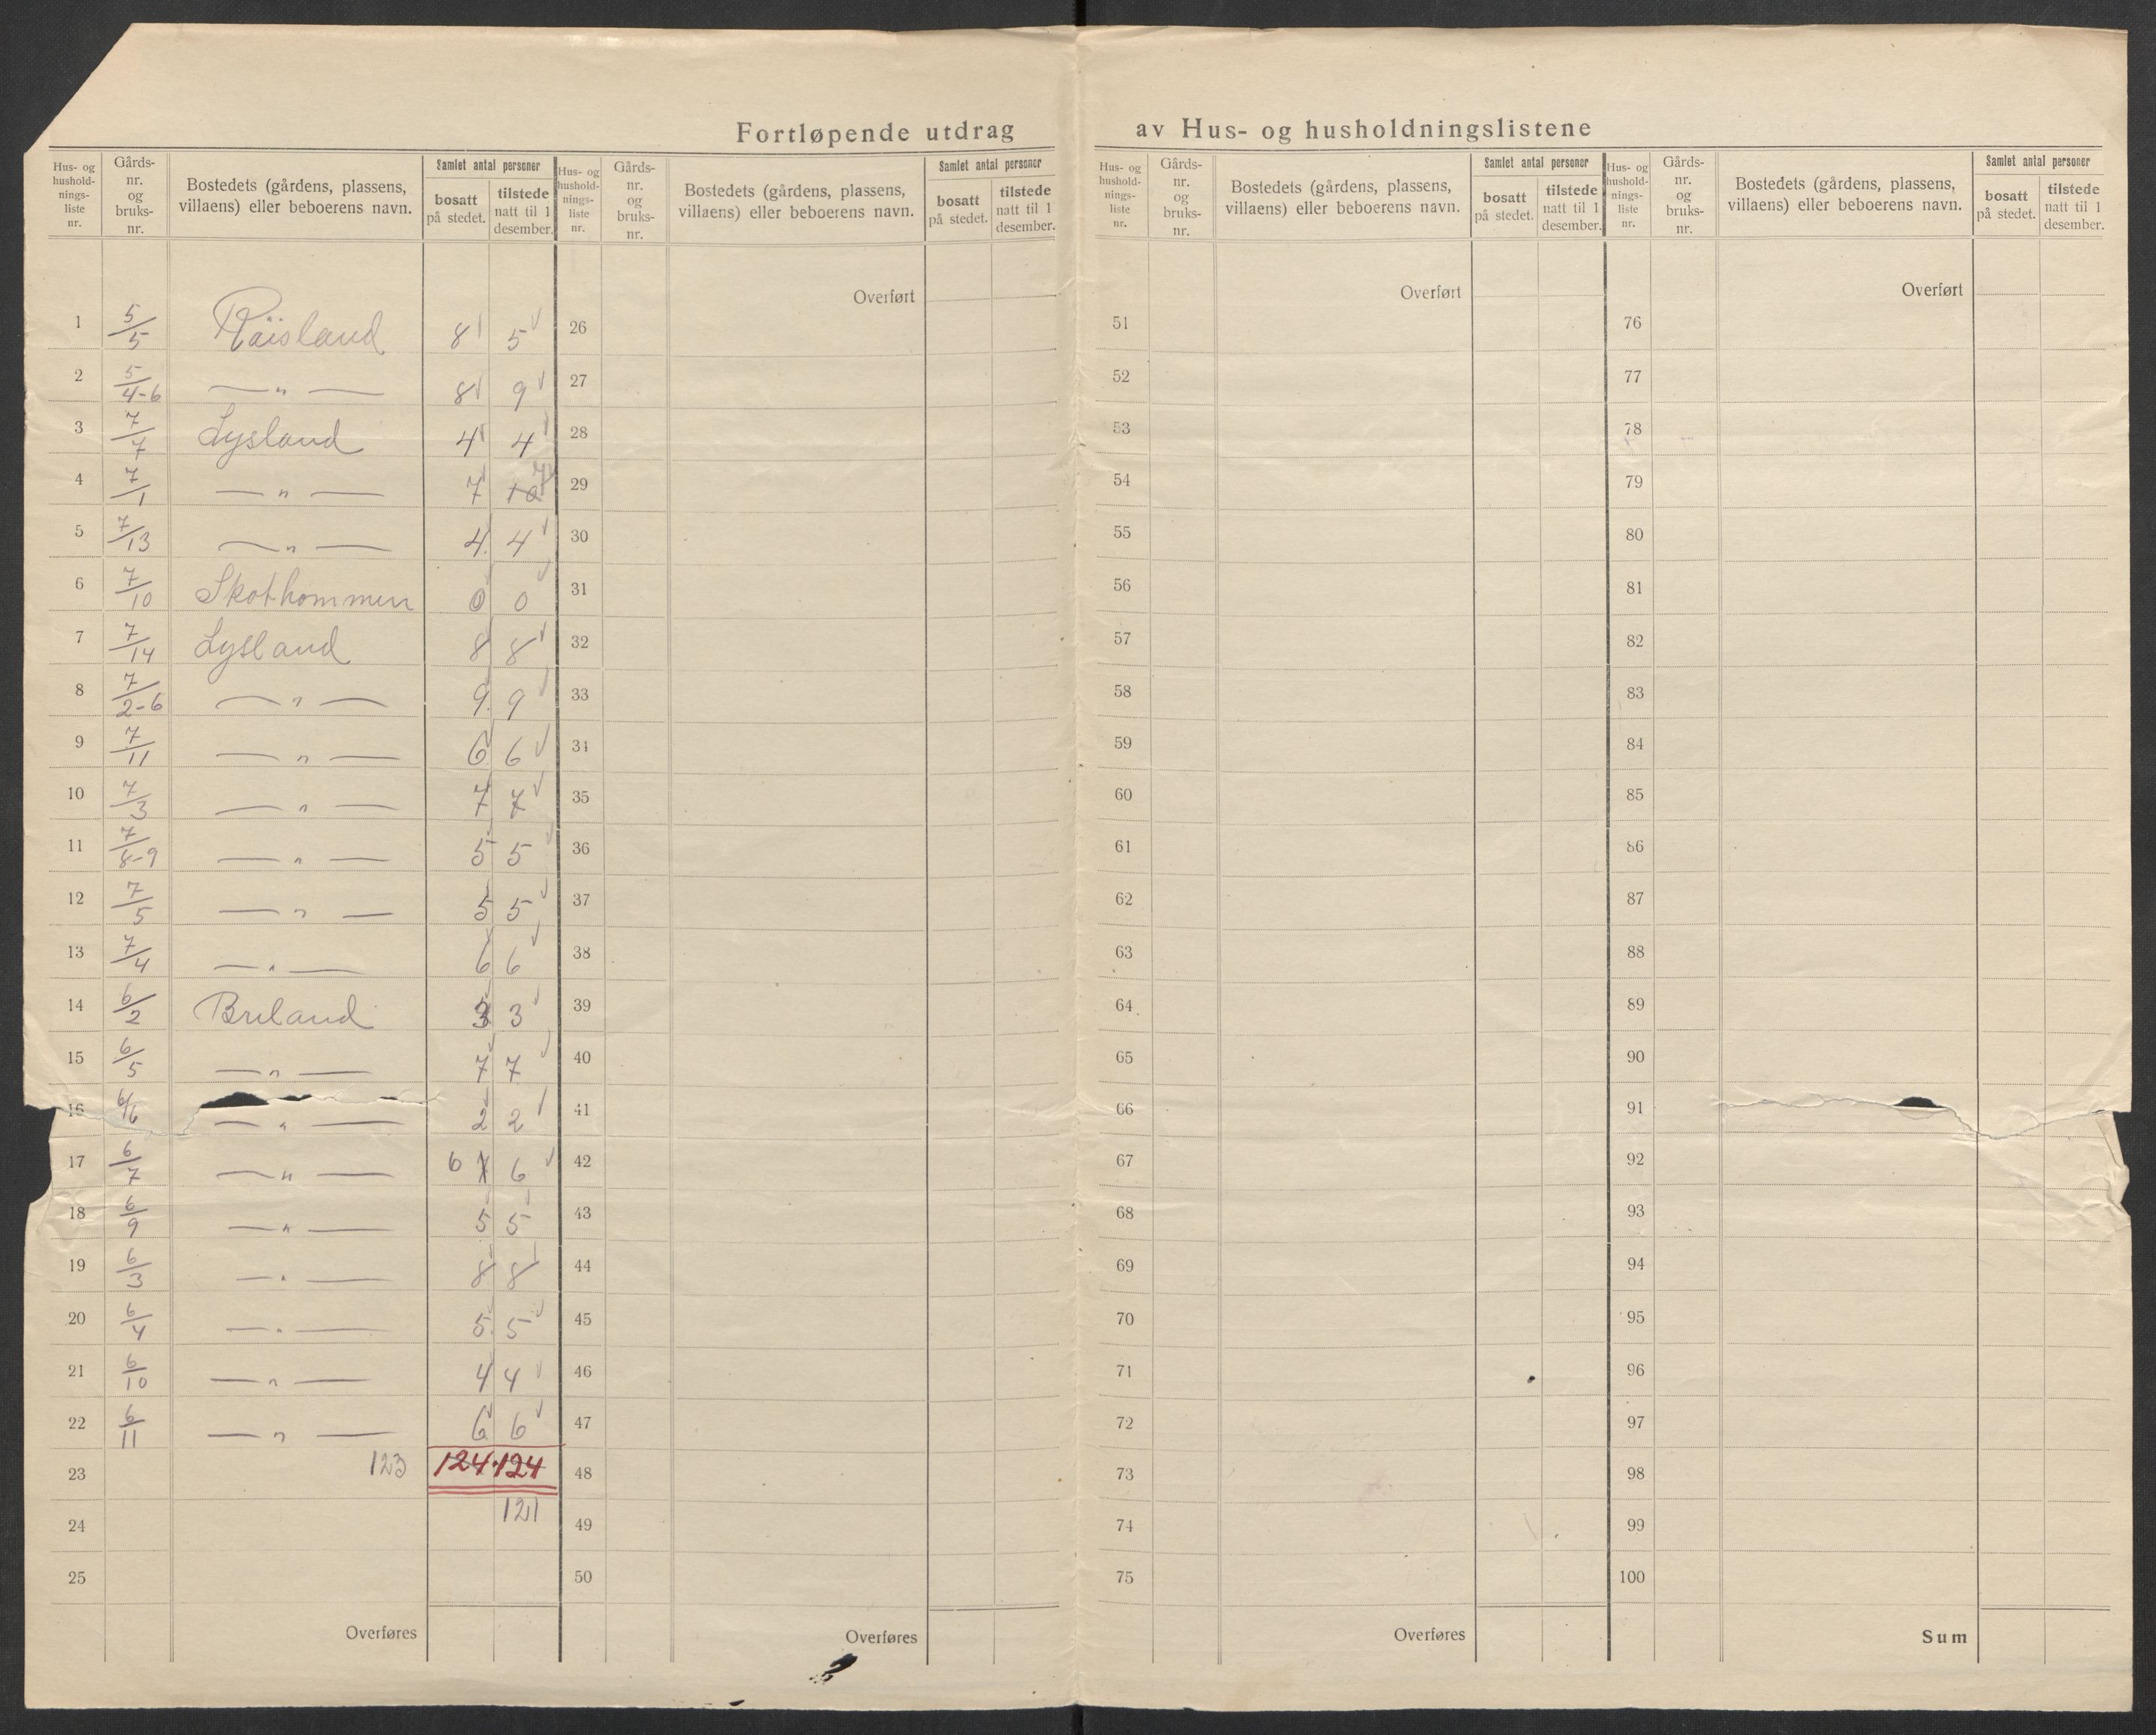 Fortløpende utdrag av Hus- og husholdningslistene
Hus- og hushold-nings-liste nr. | Gårds-nr. og bruks-nr. | Bostedets (gårdens, plassens, villaens) eller beboerens navn. | Samlet antal personer | bosatt på stedet. | tilstede natt til 1 desember.
Hus- og hushold-nings-liste nr. | Gårds-nr. og bruks-nr. | Bostedets (gårdens, plassens, villaens) eller beboerens navn. | Samlet antal personer | bosatt på stedet. | tilstede natt til 1 desember.
Hus- og hushold-nings-liste nr. | Gårds-nr. og bruks-nr. | Bostedets (gårdens, plassens, villaens) eller beboerens navn. | Samlet antal personer | bosatt på stedet. | tilstede natt til 1 desember.
Hus- og hushold-nings-liste nr. | Gårds-nr. og bruks-nr. | Bostedets (gårdens, plassens, villaens) eller beboerens navn. | Samlet antal personer | bosatt på stedet. | tilstede natt til 1 desember.
Overført Overført Overført
1 5/5 Röisland 8 5 26 51 76
2 5/4-6 — " — 8 9 27 52 77
3 7/7 Lysland 4 4 28 53 78
4 7/1 — " — 7 10 7 29 54 79
5 7/13 — " — 4 4 30 55 80
6 7/10 Skothommen 0 0 31 56 81
7 7/14 Lysland 8 8 32 57 82
8 7/2-6 — " — 9 9 33 58 83
9 7/11 — " — 6 6 34 59 84
10 7/3 — " — 7 7 35 60 85
11 7/8-9 — " — 5 5 36 61 86
12 7/5 — " — 5 5 37 62 87
13 7/4 — " — 6 6 38 63 88
14 6/2 Breland 3 3 39 64 89
15 6/5 — " — 7 7 40 65 90
16 6/6 — " — 2 2 41 66 91
17 6/7 — " — 6 6 42 67 92
18 6/9 — " — 5 5 43 68 93
19 6/3 — " — 8 8 44 69 94
20 6/4 — " — 5 5 45 70 95
21 6/10 — " — 4 4 46 71 96
22 6/11 — " — 6 6 47 72 97
23 123 124 124 48 73 98
24 121 49 74 99
25 50 75 100
Overføres Overføres Overføres Sum